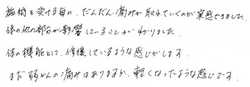 施術を受ける毎に、だんだん痛みが取れていくのが実感できました。
体の他の部分が影響していることがわかりました。
体の機能として、修復しているような感じがします。
まだ積んの痛みはありますが、軽くなったような感じです。